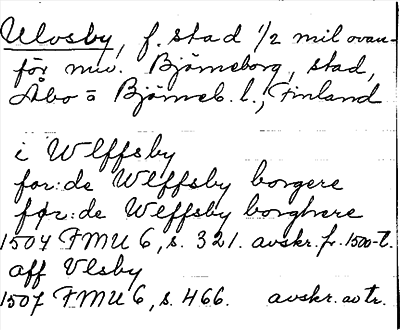 Ulvsby, f. stad 1/2 mil ovan-
för nuv. Björneborg, stad,
Åbo o Björneb. l., Finland
i Wlffsby
for:de Wlffsby borgere
for:de Wlffsby borghere
1504 FMU 6, s. 321. avskr. fr. 1500-t.
aff Vlsby
1507 FMU 6, s. 466. avskr. av tr.